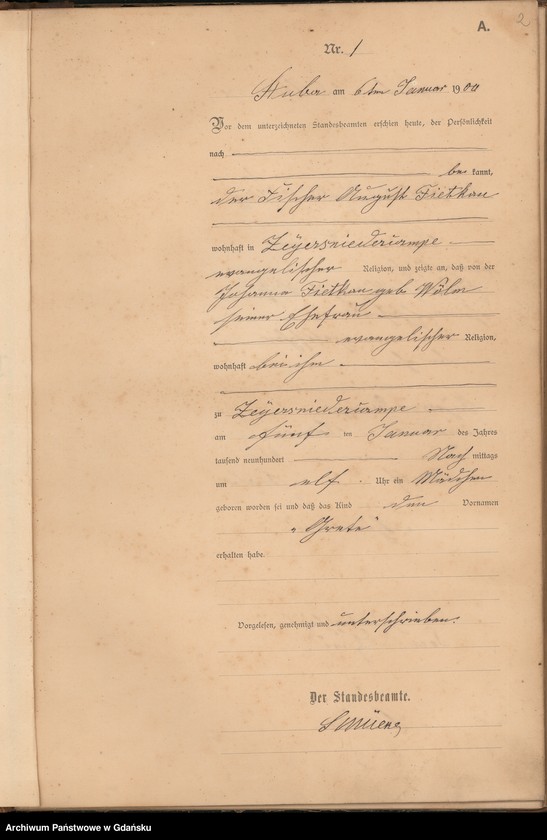 2
A.
Nr. 1
Stuba am 6ten Januar 1900
Vor dem unterzeichneten Standesbeamten erschien heute, der Persönlichkeit
nach
be kannt,
der Fischer August Fietkau
wohnhaft in Zeyersniedercampe
evangelischer Religion, und zeigte an, daß von der
Johanna Fietkau geb. Wölm
seiner Ehefrau
evangelischer Religion,
wohnhaft bei ihm
zu Zeyersniedercampe
am fünf ten Januar des Jahres
tausend neunhundert Nach mittags
um elf Uhr ein Mädchen
geboren worden sei und daß das Kind den Vornamen
„Grete“
erhalten habe.
Vorgelesen, genehmigt und unterschrieben.
Der Standesbeamte.
Archiwum Państwowe w Gdańsku